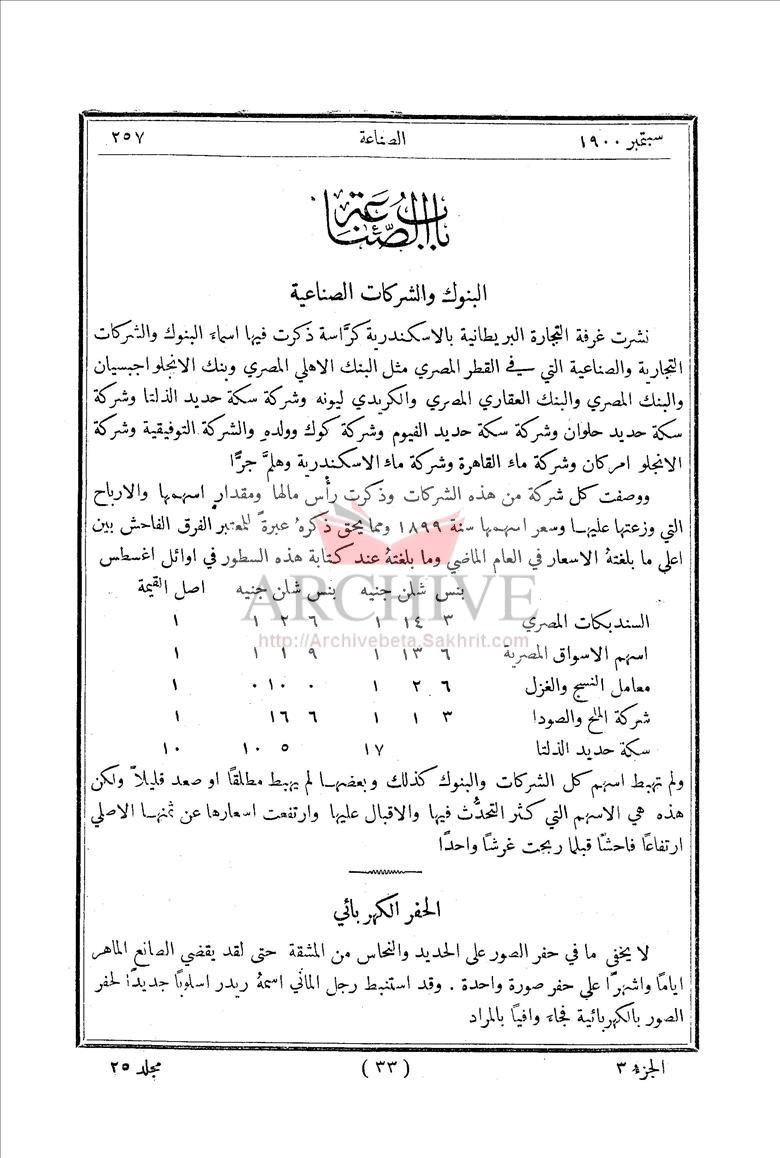 سبتمبر ١٩٠٠ الصناعة ٢٥٧
باب الصناعة
البنوك والشركات الصناعية
نشرت غرفة التجارة البريطانية بالاسكندرية كرَّاسة ذكرت فيها اسماء البنوك والشركات
التجارية والصناعية التي في القطر المصري مثل البنك الاهلي المصري وبنك الانجلو اجبسيان
والبنك المصري والبنك العقاري المصري والكريدي ليونه وشركة سكة حديد الدلتا وشركة
سكة حديد حلوان وشركة سكة حديد الفيوم وشركة كوك وولده والشركة التوفيقية وشركة
الانجلو امركان وشركة ماء القاهرة وشركة ماء الاسكندرية وهلمَّ جرًّا
ووصفت كل شركة من هذه الشركات وذكرت رأس مالها ومقدار اسهمها والارباح
التي وزعتها عليها وسعر اسهمها سنة ١٨٩٩ ومما يحق ذكرهُ عبرةً للمعتبر الفرق الفاحش بين
اعلى ما بلغتهُ الاسعار في العام الماضي وما بلغتهُ عند كتابة هذه السطور في اوائل اغسطس
بنس شلن جنيه بنس شلن جنيه اصل القيمة
السنديكات المصري ٣ ١٤ ١ ٦ ٢ ١ ١
اسهم الاسواق المصرية ٦ ١٣ ١ ٩ ١ ١ ١
معامل النسج والغزل ٦ ٢ ١ ٠ ١٠ ٠ ١
شركة الملح والصودا ٣ ١ ١ ٦ ١٦ ١
سكة حديد الدلتا ١٧ ٥ ١٠ ١٠
ولم تهبط اسهم كل الشركات والبنوك كذلك وبعضها لم يهبط مطلقًا او صعد قليلاً ولكن
هذه هي الاسهم التي كثر التحدُّث فيها والاقبال عليها وارتفعت اسعارها عن ثمنها الاصلي
ارتفاعًا فاحشًا قبلما ربحت غرشًا واحدًا
الحفر الكهربائي
لا يخفى ما في حفر الصور على الحديد والنحاس من المشقة حتى لقد يقضي الصانع الماهر
ايامًا واشهرًا على حفر صورة واحدة . وقد استنبط رجل الماني اسمهُ ريدر اسلوبًا جديدًا لحفر
الصور بالكهربائية فجاء وافيًا بالمراد
الجزء ٣ (٣٣) مجلد ٢٥
ARCHIVE
http://Archivebeta.Sakhrit.com